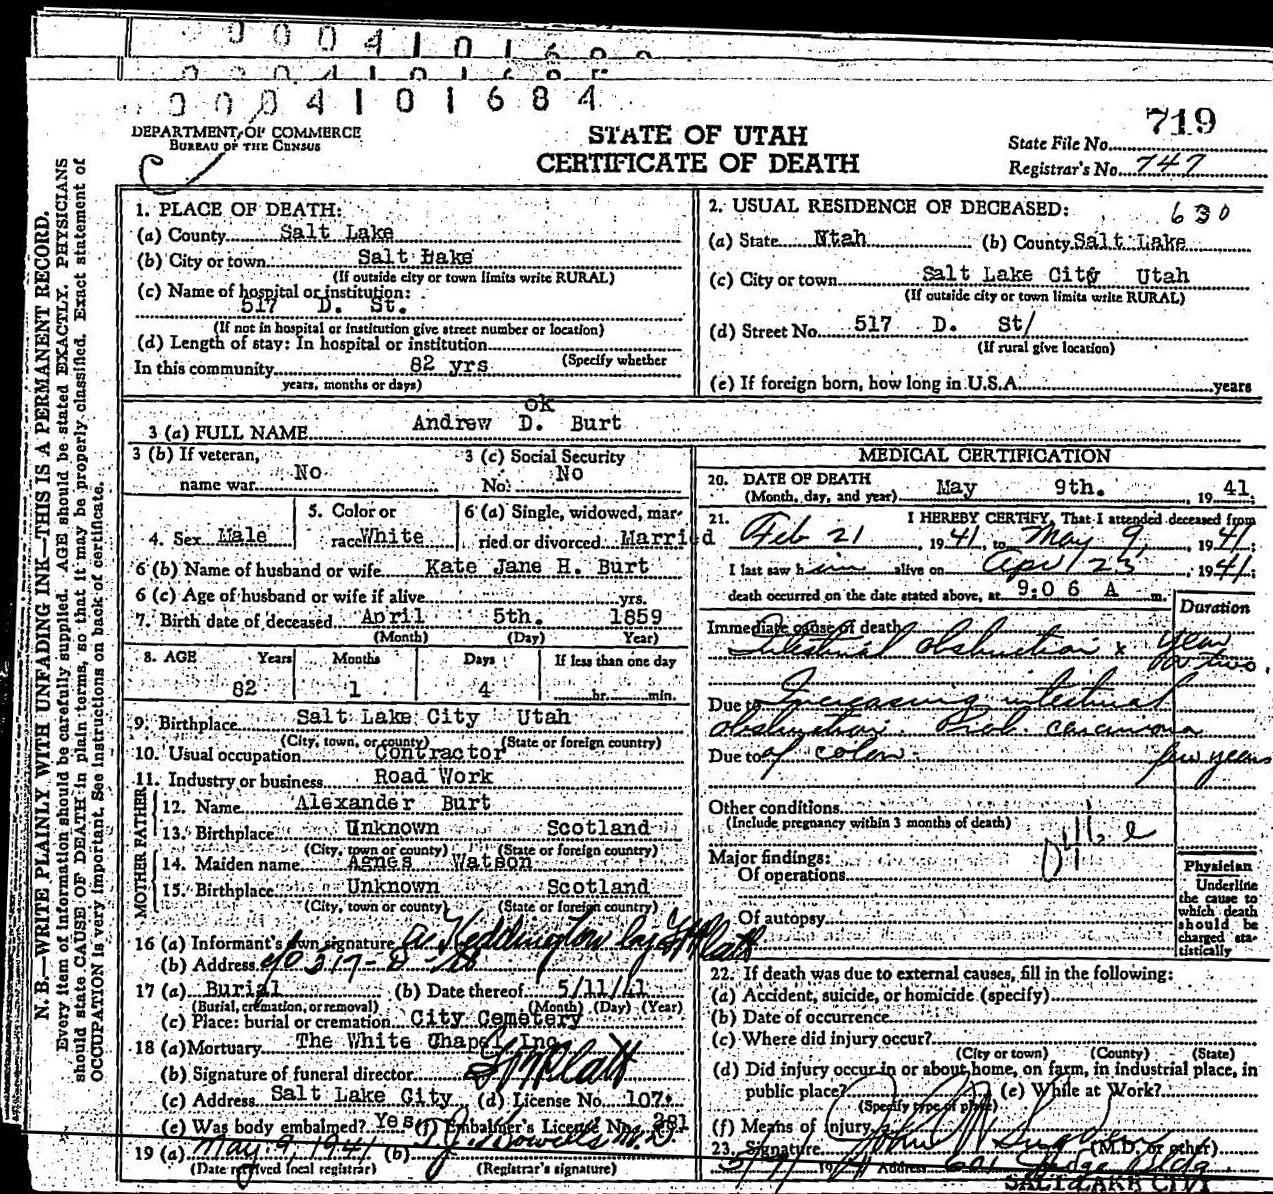 0004101684
719
DEPARTMENT OF COMMERCE
BUREAU OF THE CENSUS
STATE OF UTAH
CERTIFICATE OF DEATH
State File No.
Registrar's No. 747
N. B.—WRITE PLAINLY WITH UNFADING INK—THIS IS A PERMANENT RECORD.
Every item of information should be carefully supplied. AGE should be stated EXACTLY. PHYSICIANS
should state CAUSE OF DEATH in plain terms, so that it may be properly classified. Exact statement of
OCCUPATION is very important. See instructions on back of certificate.
1. PLACE OF DEATH:
(a) County Salt Lake
(b) City or town Salt Bake
(If outside city or town limits write RURAL)
(c) Name of hospital or institution:
517 D. St.
(If not in hospital or institution give street number or location)
(d) Length of stay: In hospital or institution
(Specify whether
In this community 82 yrs
years, months or days)
2. USUAL RESIDENCE OF DECEASED: 630
(a) State Ntah (b) County Salt Lake
(c) City or town Salt Lake City Utah
(If outside city or town limits write RURAL)
(d) Street No. 517 D. St/
(If rural give location)
(e) If foreign born, how long in U.S.A. years
ok
3 (a) FULL NAME Andrew D. Burt
3 (b) If veteran,
name war No
3 (c) Social Security
No. No
4. Sex Male
5. Color or
race White
6 (a) Single, widowed, mar-
ried or divorced Married
6 (b) Name of husband or wife Kate Jane H. Burt
6 (c) Age of husband or wife if alive yrs.
7. Birth date of deceased April 5th. 1859
(Month) (Day) Year)
8. AGE Years Months Days If less than one day
82 1 4 hr. min.
9. Birthplace Salt Lake City Utah
(City, town, or county) (State or foreign country)
10. Usual occupation Contractor
11. Industry or business Road Work
FATHER
12. Name Alexander Burt
13. Birthplace Unknown Scotland
(City, town or county) (State or foreign country)
MOTHER
14. Maiden name Agnes Watson
15. Birthplace Unknown Scotland
(City, town or county) (State or foreign country)
16 (a) Informant's own signature
(b) Address
17 (a) Burial (b) Date thereof 5/11/41
(Burial, cremation, or removal) (Month) (Day) (Year)
(c) Place: burial or cremation City Cemetery
18 (a) Mortuary The White Chapel Inc
(b) Signature of funeral director
(c) Address Salt Lake City (d) License No. 107
(e) Was body embalmed? Yes (f) Embalmer's License No. 291
19 (a) May 9, 1941 (b)
(Date received local registrar) (Registrar's signature)
MEDICAL CERTIFICATION
20. DATE OF DEATH
(Month, day, and year) May 9th. , 19 41.
21. I HEREBY CERTIFY, That I attended deceased from
Feb 21 , 19 41, to May 9, , 19 41.
I last saw h im alive on Apr 23 , 19 41.
death occurred on the date stated above, at 9:06 A m.
Duration
Immediate cause of death
Intestinal obstruction x year
or two.
Due to Increasing intestinal
obstruction. Prob. carcinoma
Due to of colon. few years
Other conditions
(Include pregnancy within 3 months of death)
Major findings:
Of operations
Of autopsy
Physician
Underline
the cause to
which death
should be
charged sta-
tistically
22. If death was due to external causes, fill in the following:
(a) Accident, suicide, or homicide (specify)
(b) Date of occurrence
(c) Where did injury occur?
(City or town) (County) (State)
(d) Did injury occur in or about home, on farm, in industrial place, in
public place? (e) While at Work?
(Specify type of place)
(f) Means of injury
23. Signature John (M.D. or other)
Address Judge Bldg
SALT LAKE CITY